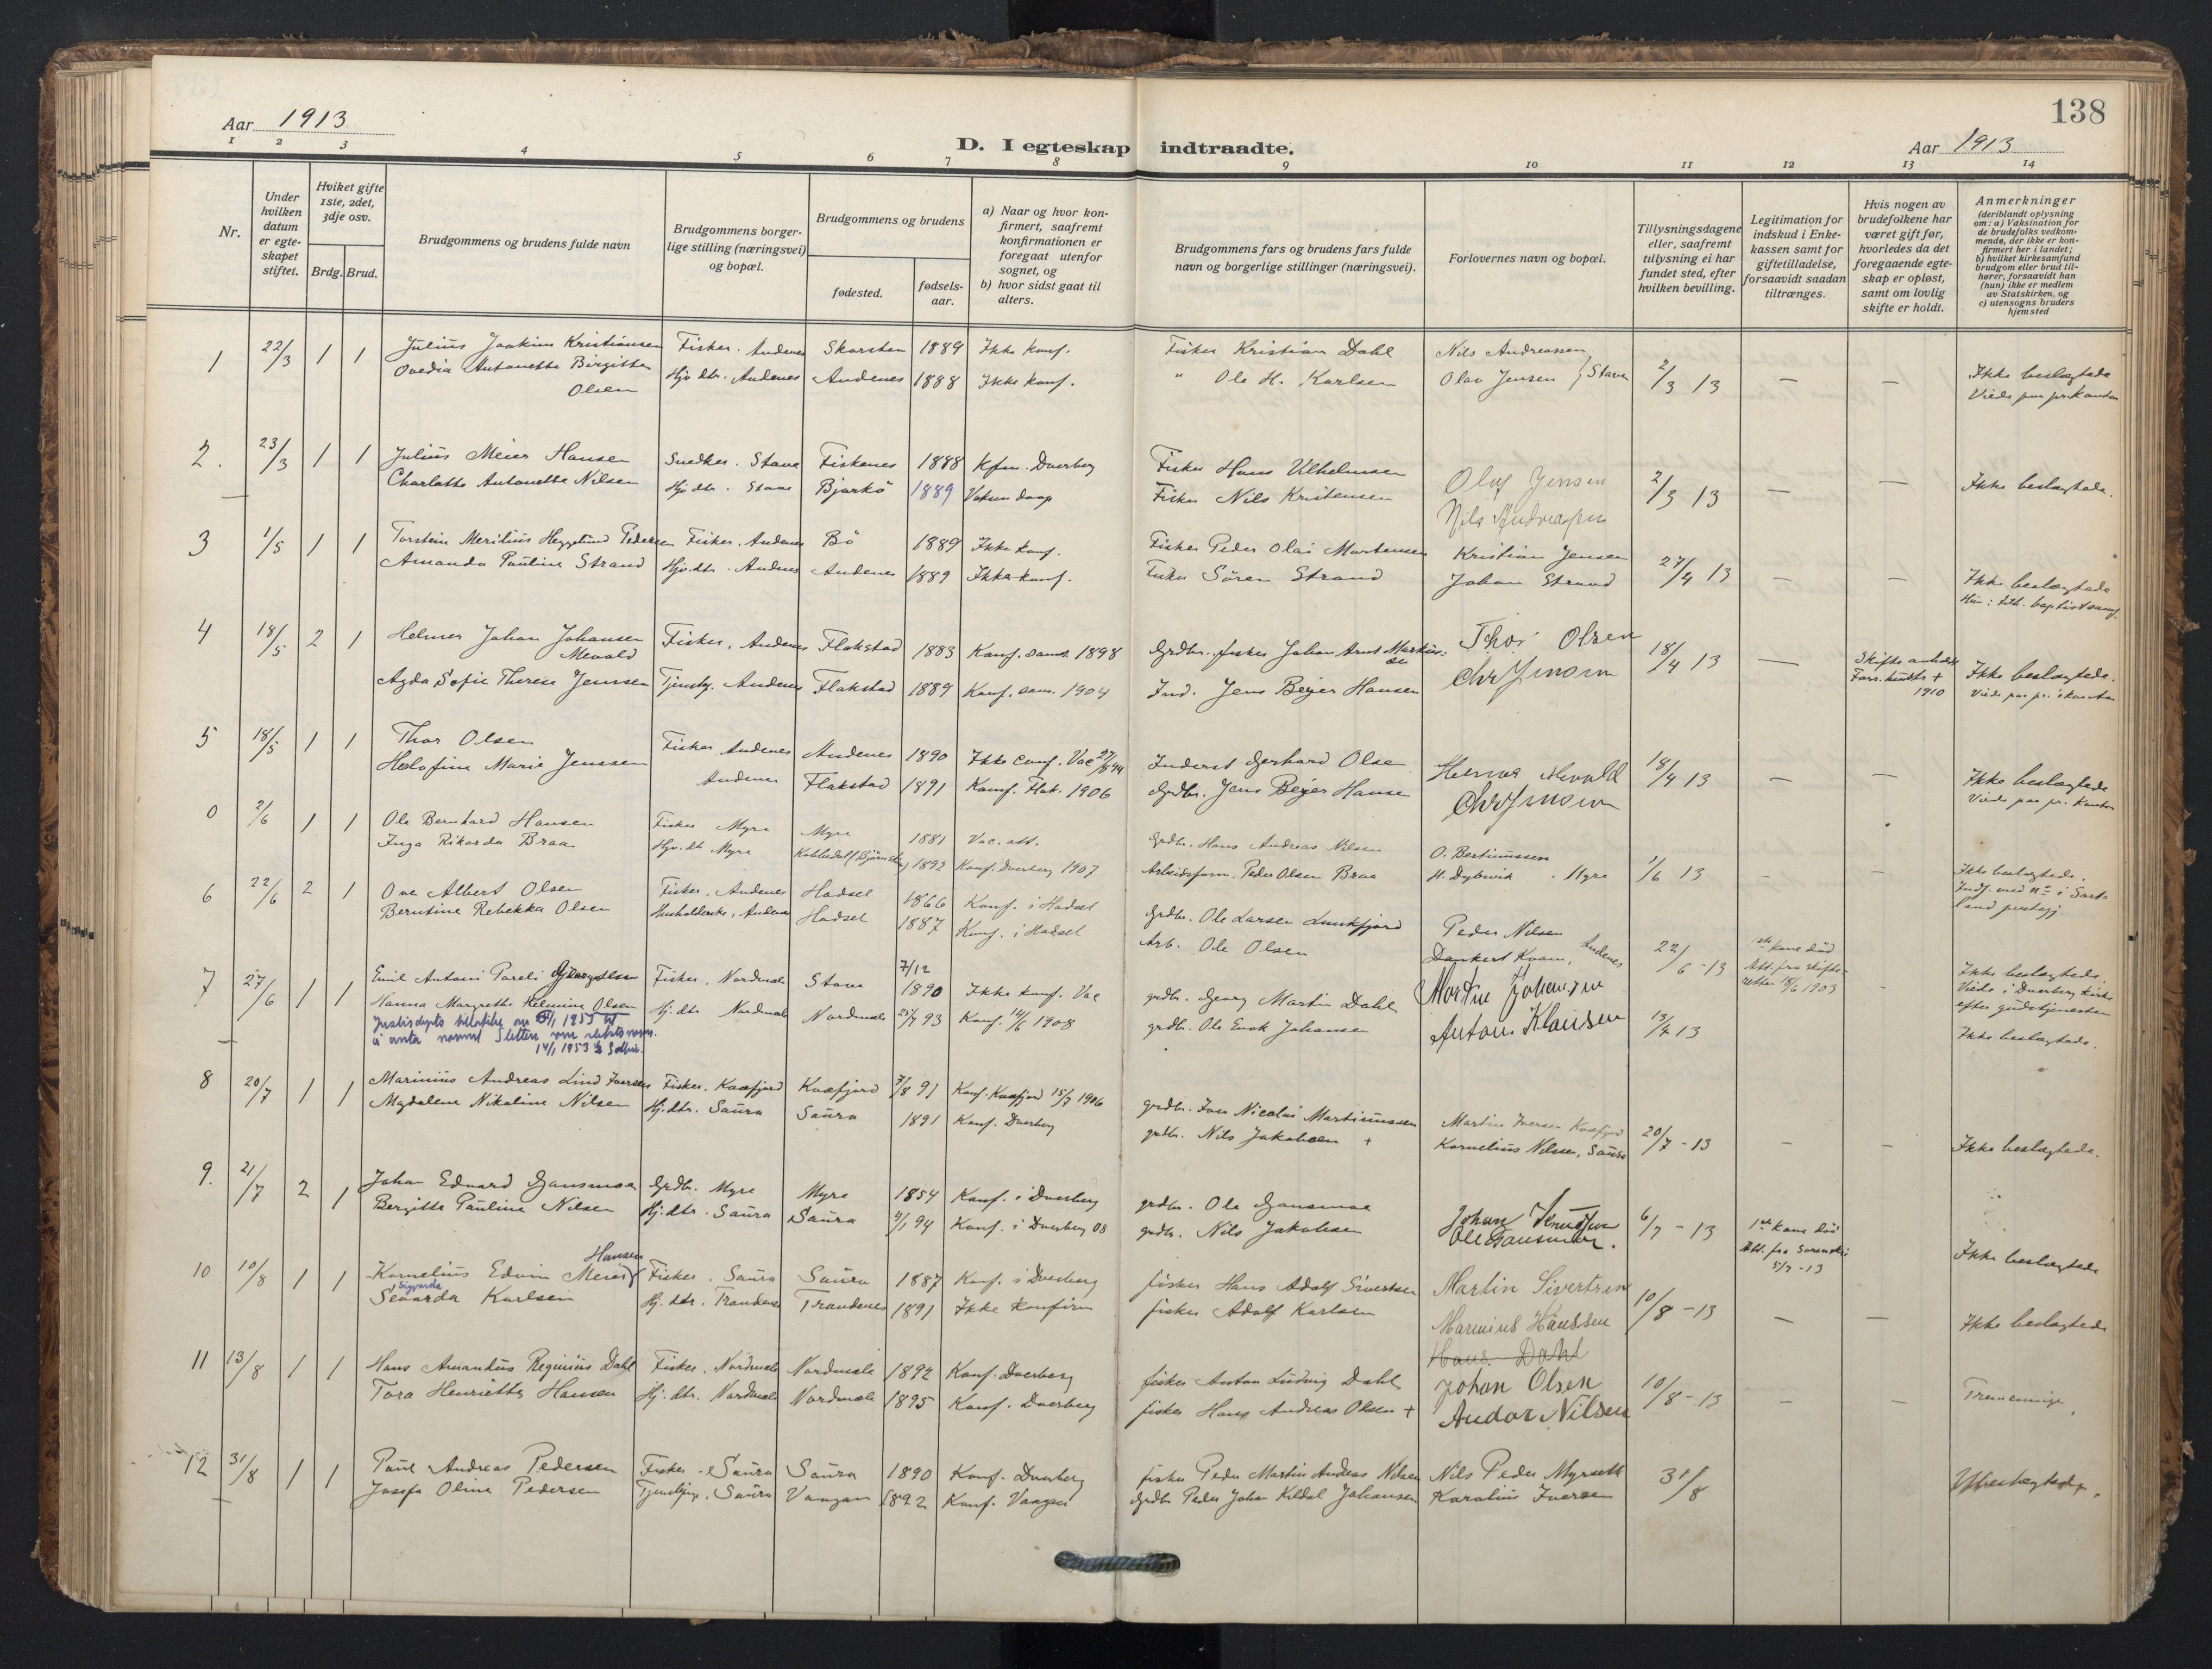 138
Aar 1913
D. I egteskap indtraadte.
Aar 1913
1 2 3 4 5 6 7 8 9 10 11 12 13 14
Nr.
Under hvilken datum er egteskapet stiftet.
Hviket gifte 1ste, 2det, 3dje osv.
Brdg. Brud.
Brudgommens og brudens fulde navn
Brudgommens borgerlige stilling (næringsvei) og bopæl.
Brudgommens og brudens
fødested.
fødselsaar.
a) Naar og hvor konfirmert, saafremt konfirmationen er foregaat utenfor sognet, og
b) hvor sidst gaat til alters.
Brudgommens fars og brudens fars fulde navn og borgerlige stillinger (næringsvei).
Forlovernes navn og bopæl.
Tillysningsdagene eller, saafremt tillysning ei har fundet sted, efter hvilken bevilling.
Legitimation for indskud i Enkekassen samt for giftetilladelse, forsaavidt saadan tiltrænges.
Hvis nogen av brudefolkene har været gift før, hvorledes da det foregaaende egteskap er opløst, samt om lovlig skifte er holdt.
Anmerkninger
(deriblandt oplysning om: a) Vaksination for de brudefolks vedkommende, der ikke er konfirmert her i landet; b) hvilket kirkesamfund brudgom eller brud tilhører, forsaavidt han (hun) ikke er medlem av Statskirken, og c) utensogns bruders hjemsted
1 22/3 1 1 Julius Joakim Kristiansen Fisker. Andenes 1889 Ikke konf. Fisker Kristian Dahl Nils Andreassen
Ovedia Antonette Birgitte Olsen Hjv. dtr. Andenes Andenes 1888 Ikke konf. " Ole H. Karlsen Olav Jensen } Stave 2/3 13 — — Ikke beslegtede
2. 23/3 1 1 Julius Meier Hansen Snedker. Stave Fiskenes 1888 Kfm. Dverberg Fisker Hans Vilhelmsen Olaf Jensen 2/3 13 — — Ikke beslegtede.
Charlotte Antonette Nilsen Hjv dtr. Stave Bjarkö 1889 Fisker Nils Kristensen Nils Andreassen
3 1/5 1 1 Torstein Merilius Heggelund Pedersen Fisker. Andenes Bö 1889 Ikke konf. Fisker Peder Olai Mortensen Kristian Jensen 27/4 13 — —
Amanda Pauline Strand Hjv. dtr. Andenes Andenes 1889 Ikke konf. Fisker Sören Strand Johan Strand Ikke beslegtede
Hun: baptistsamf.
4 18/5 2 1 Helmer Johan Johansen Mevold Fisker, Andenes Flakstad 1883 Konf. sams. 1898 Grdbr. fisker Johan Arnt Thor Olsen 18/4 13 —
Agda Sofie Therese Jenssen Andenes Flakstad 1889 Konf. sam. 1904 Ind. Jens Beyer Hansen 1910 Ikke beslegtede.
5 18/5 1 1 Thor Olsen Fisker Andenes Andenes 1890 Ikke conf. Vac Inderst Gerhard Olsen Helmer Mevold 18/4 13 — — Ikke beslegtede
Marie Jenssen Andenes Flakstad 1891 Konf. Flak. 1906 Grdbr. Jens Beyer Hansen
0 2/6 1 1 Ole Bernhard Hansen Fisker Myre Myre 1881 Vac. att. Grdbr. Hans Andreas Nilsen O. Bertinussen
Inga Rikarda Braa Hjv. dtr Myre 1892 Konf. Dverberg 1907 Arbeidsform. Peder Olsen Braa H. Dybvik Myre 1/6 13 — — Ikke beslegtede.
6 22/6 2 1 Ove Albert Olsen Fisker. Andenes Hadsel 1866 Konf. i Hadsel Grdbr. Ole Larsen Peder Nilsen
Berntine Rebekka Olsen Husholderske, Andenes Hadsel 1887 Konf. i Hadsel Arb. Ole Olsen Dankert Kvam, Andenes 22/6 -13 1ste kone död
Att. fra skifteretten 18/6 1903 Ikke beslegtede.
Viede i Dverberg kirke efter gudstjenesten
7 27/6 1 1 Emil Antoni Pareli Fisker, Nordmele Stave 7/12 1890 Ikke konf. Vac grdbr. Georg Martin Dahl Martin Johansen
Hanna Margrethe Helmine Olsen Hj. dtr Nordmele Nordmele 93 Konf. 14/6 1908 grdbr. Ole Enok Johansen Anton Klausen 13/4 13 Ikke beslegtede.
å anta navnet Sletten som slektsnavn.
14/1 1953
8 20/7 1 1 Marinius Andreas Lind Iversen Fisker. Kvæfjord Kvæfjord 7/8 91 Konf. Kvæfjord 15/7 1906 grdbr. Iver Nicolai Martinussen Martin Iversen Kvæfjord 20/7 -13
Magdalene Nikoline Nilsen Hj. dtr. Saura Saura 1891 Konf. Dverberg grdbr. Nils Jakobsen + Kornelius Nilsen, Saura — — Ikke beslegtede.
9. 21/7 2 1 Johan Edvard Gansmoe Grdbr. Myre Myre 1854 Konf. i Dverberg grdbr. Ole Gansmoe Johan 6/7 - 13 1ste kone död
Bergitte Pauline Nilsen Hj. dtr. Saura Saura 94 Konf. i Dverberg 08 grdbr. Nils Jakobsen Ole Gansmoe. 5/7 -13 Ikke beslegtede
10 10/8 1 1 Kornelius Edvin Meier Hansen Fisker. Saura Saura 1887 Konf. i Dverberg fisker Hans Adolf Sivertsen Martin Sivertsen 10/8 -13
Sigvarda
Sevarda Karlsen Hj. dtr. Trandenes Trandenes 1891 Ikke konfirm fisker Adolf Karlsen Marinius Hanssen — — Ikke beslegtede
11 13/8 1 1 Hans Amandus Reginius Dahl Fisker. Nordmele Nordmele 1892 Konf. Dverberg fisker Anton Ludvig Dahl Hans Dahl
Johan Olsen 10/8 -13 — — Tremenninge
Tora Henriette Hansen Hj. dtr. Nordmele Nordmele 1895 Konf. Dverberg fisker Hans Andreas Olsen + Andor Nilsen
12 31/8 1 1 Paul Andreas Pedersen Fisker - Saura Saura 1890 Konf. Dverberg fisker Peder Martin Andreas Nilsen Nils Peder Myrseth 31/8
Josefa Oline Pedersen Saura Vaagan 1892 Konf. Vaagan Grdbr Peder Johan Kildal Johansen Karolius Iversen Ubeslegtede.